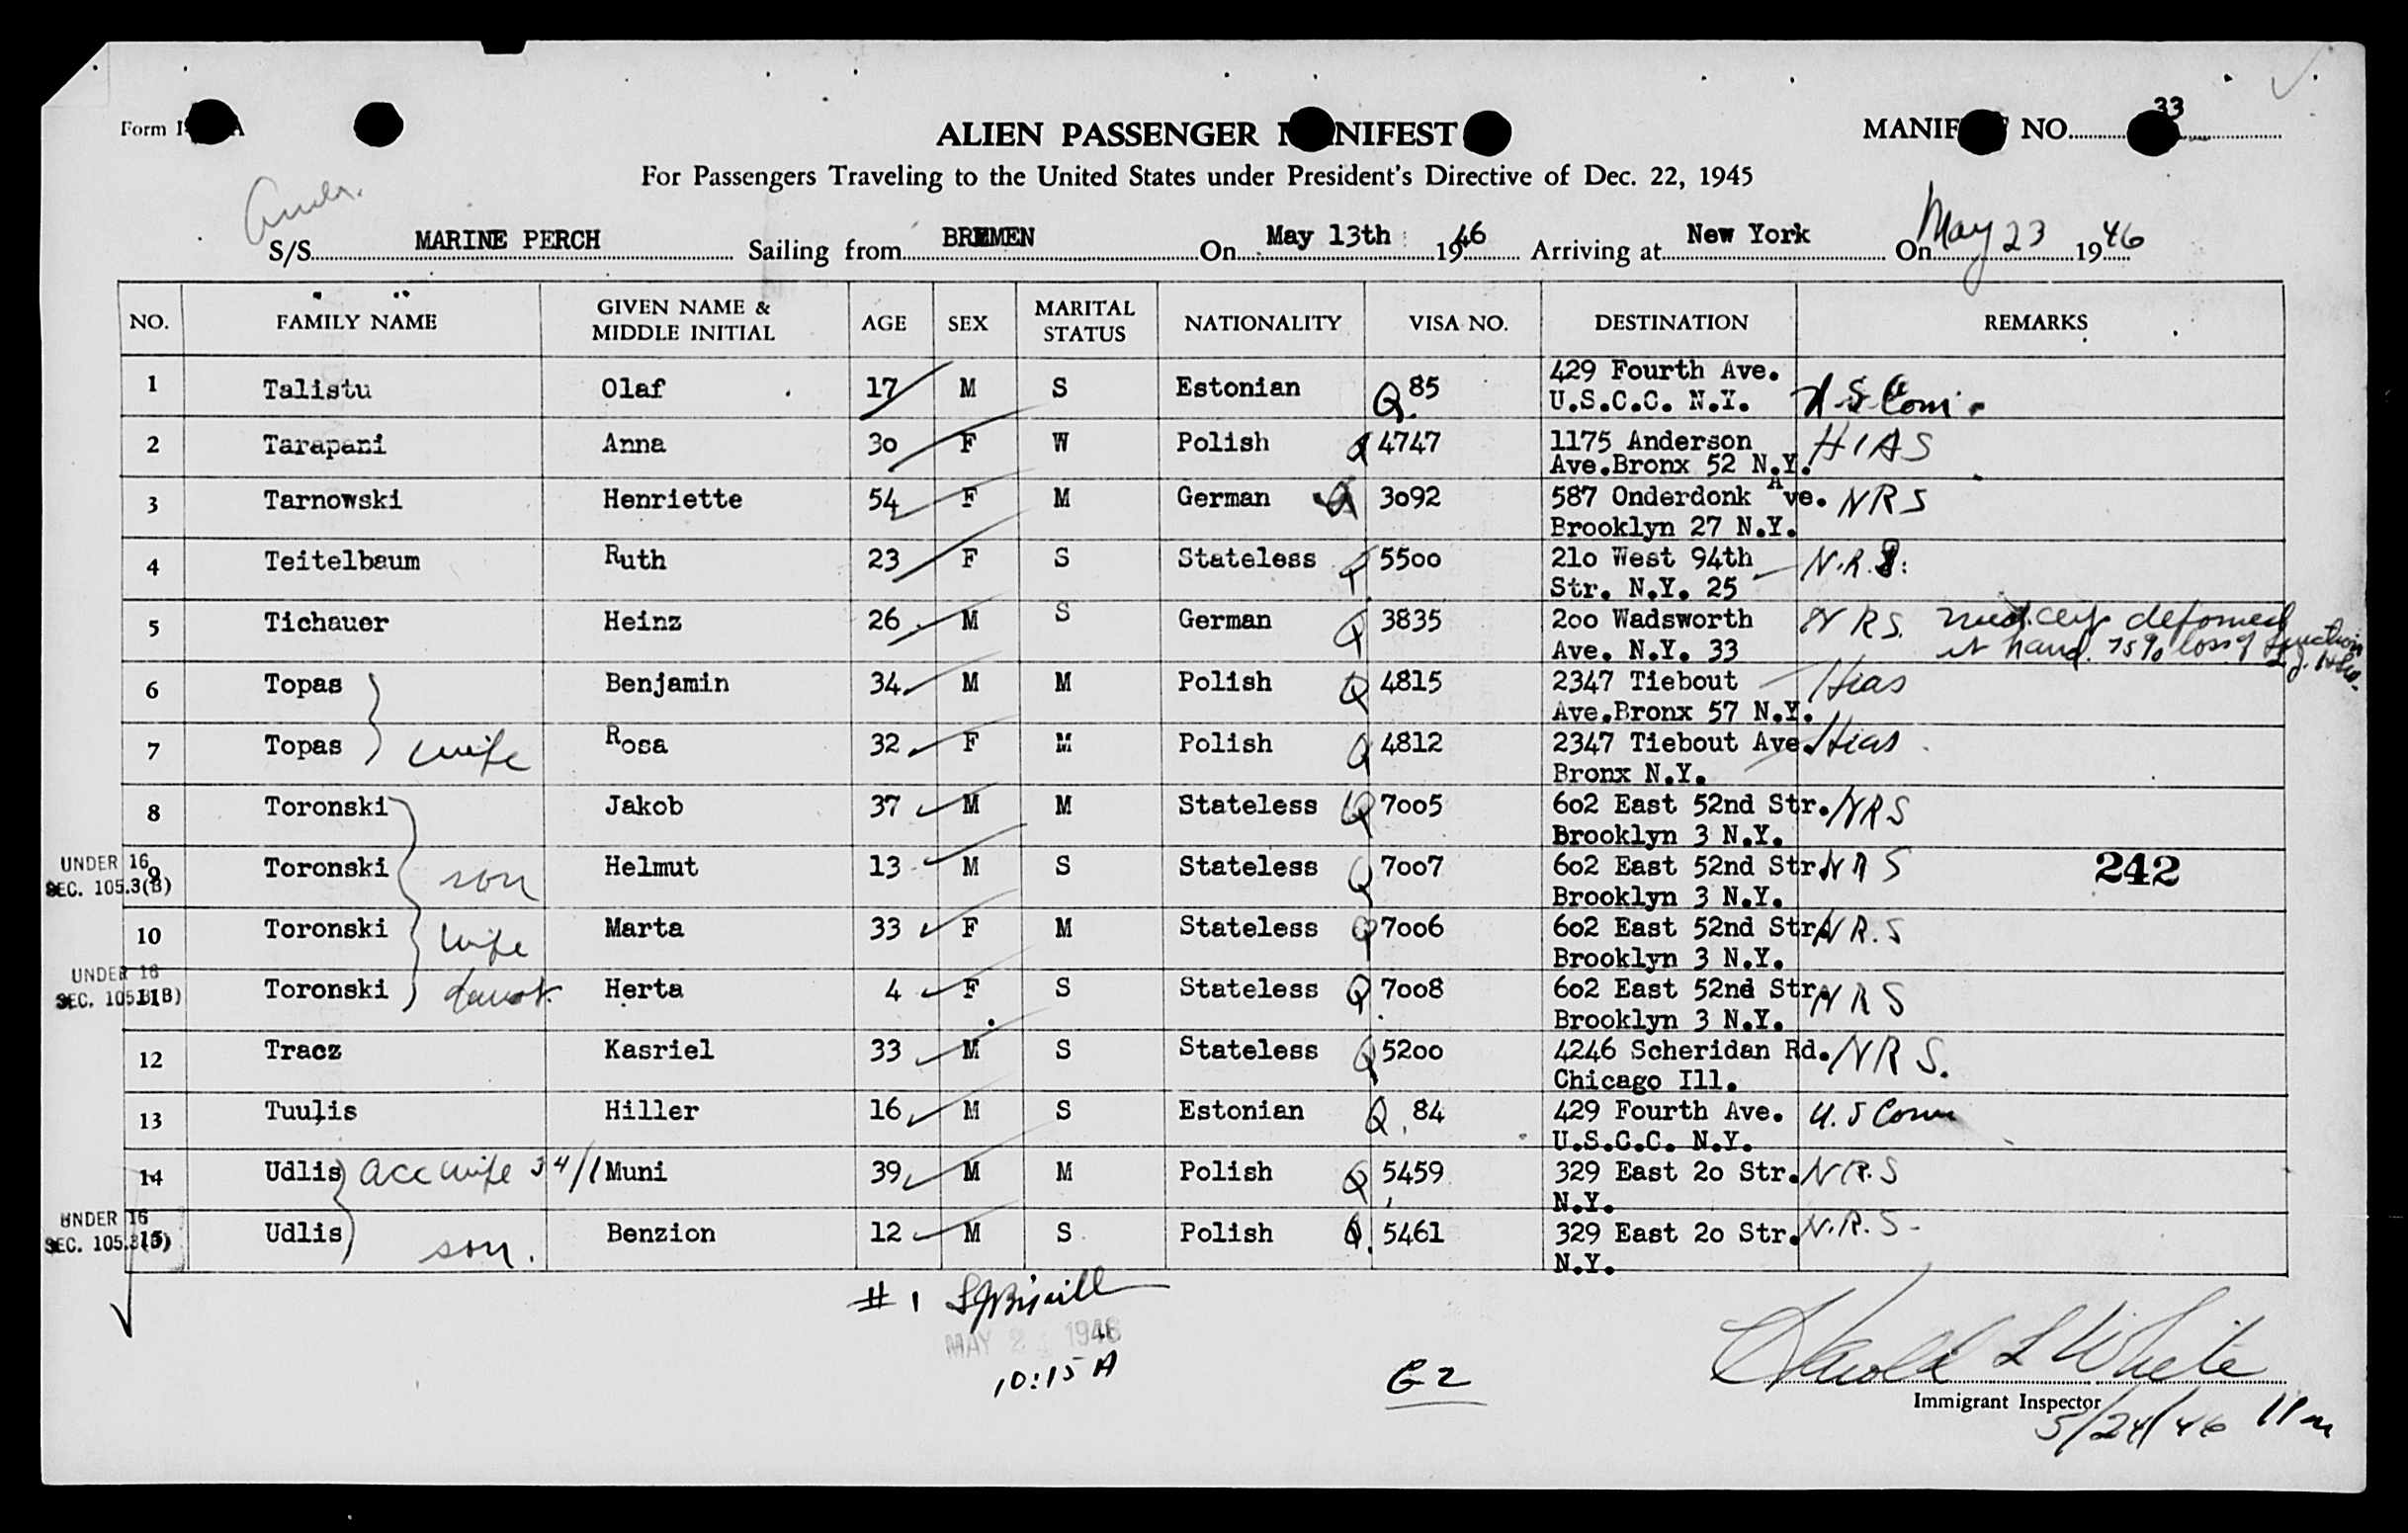 33
Form I- A
ALIEN PASSENGER M NIFEST
MANIF NO.
For Passengers Traveling to the United States under President's Directive of Dec. 22, 1945
S/S MARINE PERCH Sailing from BREMEN On May 13th 1946 Arriving at New York On May 23 1946
NO. FAMILY NAME GIVEN NAME & MIDDLE INITIAL AGE SEX MARITAL STATUS NATIONALITY VISA NO. DESTINATION REMARKS
1 Talistu Olaf 17 M S Estonian Q 85 429 Fourth Ave.
U.S.C.C. N.Y. U S Com.
2 Tarapani Anna 30 F W Polish Q 4747 1175 Anderson HIAS
Ave.Bronx 52 N.Y.
3 Tarnowski Henriette 54 F M German Q 3092 587 Onderdonk Ave. NRS
Brooklyn 27 N.Y.
4 Teitelbaum Ruth 23 F S Stateless Q 5500 210 West 94th N.R.S.
Str. N.Y. 25
5 Tichauer Heinz 26 M S German Q 3835 200 Wadsworth NRS. med. cert deformed
Ave. N.Y. 33 hand. 75% loss of function
6 Topas Benjamin 34 M M Polish Q 4815 2347 Tiebout Hias
Ave.Bronx 57 N.Y.
7 Topas wife Rosa 32 F M Polish Q 4812 2347 Tiebout Ave Hias
Bronx N.Y.
8 Toronski Jakob 37 M M Stateless Q 7005 602 East 52nd Str. NRS
Brooklyn 3 N.Y.
UNDER 16
SEC. 105.3(B)
9 Toronski son Helmut 13 M S Stateless Q 7007 602 East 52nd Str. NRS 242
Brooklyn 3 N.Y.
10 Toronski wife Marta 33 F M Stateless Q 7006 602 East 52nd Str. NR.S
Brooklyn 3 N.Y.
UNDER 16
SEC. 105.3(B)
11 Toronski Herta 4 F S Stateless Q 7008 602 East 52nd Str. NRS
Brooklyn 3 N.Y.
12 Tracz Kasriel 33 M S Stateless Q 5200 4246 Scheridan Rd. NRS.
Chicago Ill.
13 Tuulis Hiller 16 M S Estonian Q. 84 429 Fourth Ave. U.S Com
U.S.C.C. N.Y.
14 Udlis acc wife 34/1 Muni 39 M M Polish Q 5459 329 East 20 Str. NR.S
N.Y.
UNDER 16
SEC. 105.3(B)
15 Udlis son. Benzion 12 M S Polish Q. 5461 329 East 20 Str. N.R.S-
N.Y.
# 1
MAY 24 1946
10:15 A
G2
Harold L White
Immigrant Inspector
5/24/46 11 m